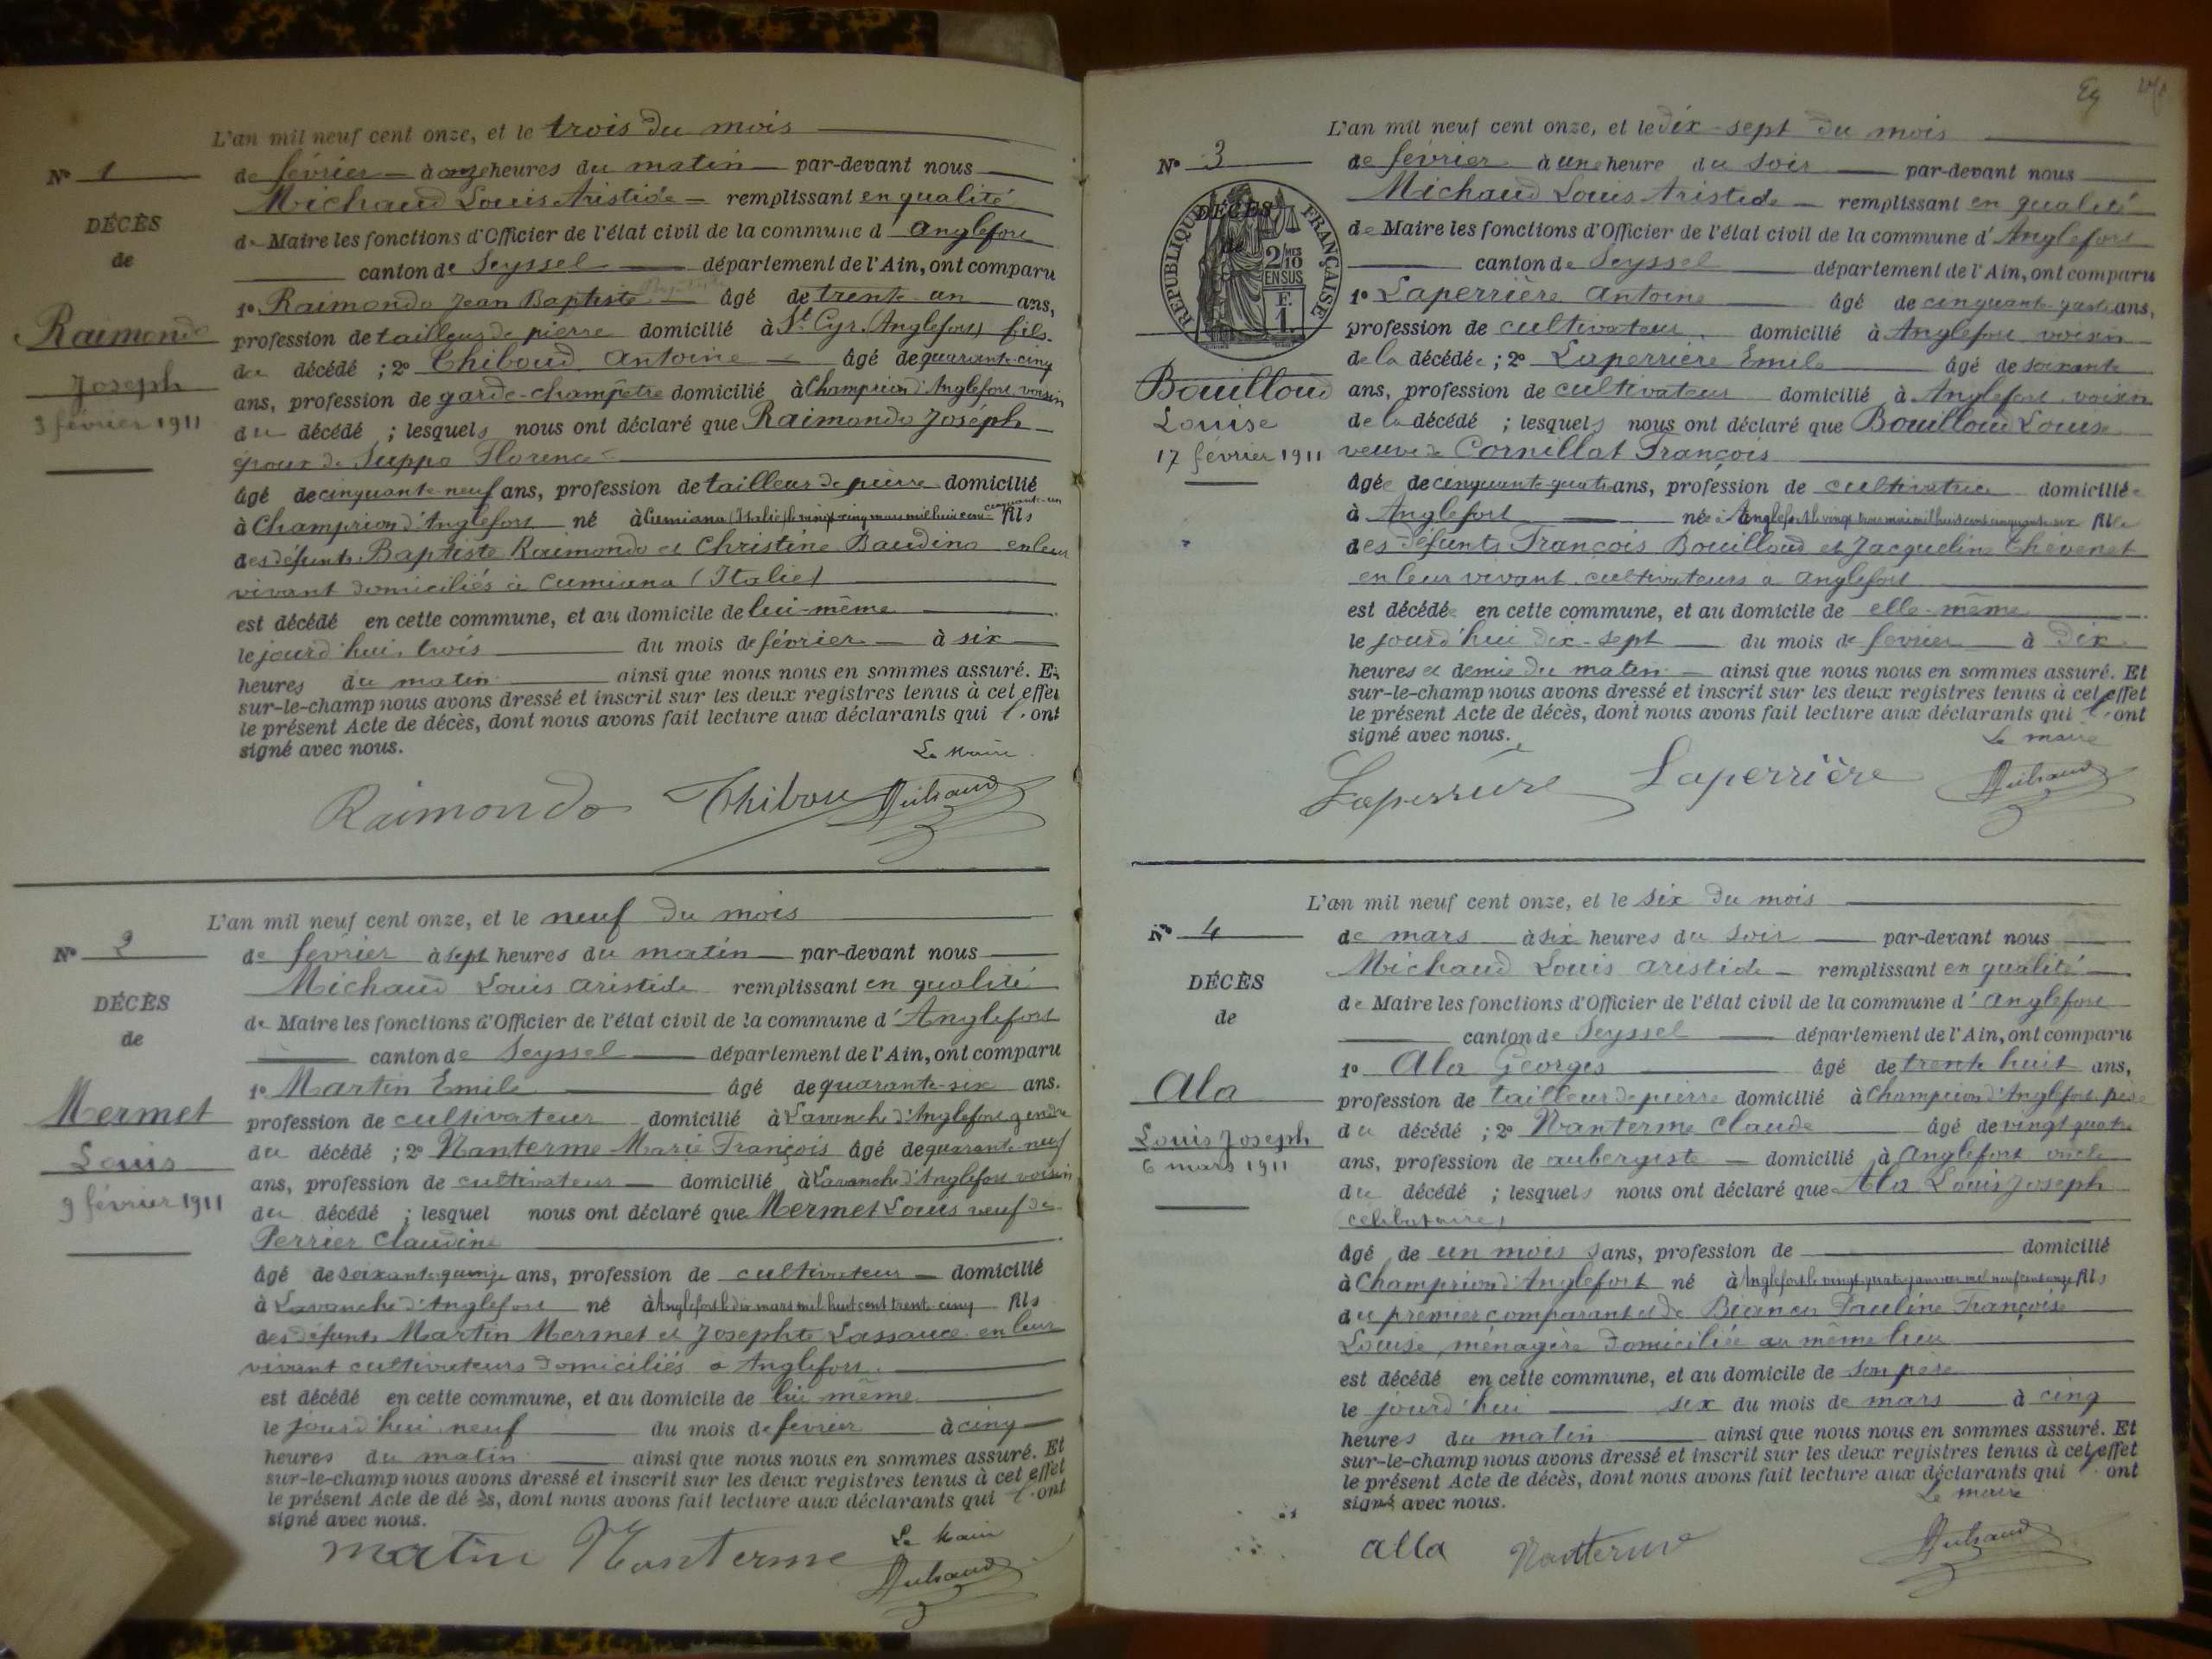 L'an mil neuf cent onze, et le trois du mois
N° 1
de février à onze heures du matin par-devant nous
Michaud Louis Aristide remplissant en qualité
DÉCÈS
de Maire les fonctions d'Officier de l'état civil de la commune d'Anglefort
de
canton de Seyssel département de l'Ain, ont comparu
1° Raimondo Jean Baptiste âgé de trente un ans,
Raimondo
profession de tailleur de pierre domicilié à St Cyr (Anglefort) fils
du décédé ; 2° Thiboud Antoine âgé de quarante-cinq
Joseph
ans, profession de garde-champêtre domicilié à Champrion d'Anglefort voisin
3 février 1911
du décédé ; lesquels nous ont déclaré que Raimondo Joseph
époux de Suppo Florence
âgé de cinquante-neuf ans, profession de tailleur de pierre domicilié
à Champrion d'Anglefort né à Cumiana (Italie) le vingt-cinq mars mil huit cent cinquante-un fils
des défunts Baptiste Raimondo et Christine Baudino en leur
vivant domiciliés à Cumiana (Italie)
est décédé en cette commune, et au domicile de lui-même
le jourd'hui trois du mois de février à six
heures du matin ainsi que nous nous en sommes assuré. Et
sur-le-champ nous avons dressé et inscrit sur les deux registres tenus à cet effet
le présent Acte de décès, dont nous avons fait lecture aux déclarants qui l'ont
signé avec nous.
Le Maire
Raimondo Thibou Michaud
L'an mil neuf cent onze, et le neuf du mois
N° 2
de février à sept heures du matin par-devant nous
Michaud Louis Aristide remplissant en qualité
DÉCÈS
de Maire les fonctions d'Officier de l'état civil de la commune d'Anglefort
de
canton de Seyssel département de l'Ain, ont comparu
1° Martin Emile âgé de quarante-six ans.
Mermet
profession de cultivateur domicilié à Lavanche d'Anglefort gendre
du décédé ; 2° Nanterme Marie François âgé de quarante neuf
Louis
ans, profession de cultivateur domicilié à Lavanche d'Anglefort voisin
9 février 1911
du décédé ; lesquel nous ont déclaré que Mermet Louis veuf de
Perrier Claudine
âgé de soixante quinze ans, profession de cultivateur domicilié
à Lavanche d'Anglefort né à Anglefort le dix mars mil huit cent trente-cinq fils
des défunts Martin Mermet et Josephte Lassauce en leur
vivant cultivateurs domiciliés à Anglefort.
est décédé en cette commune, et au domicile de lui même
le jourd'hui neuf du mois de février à cinq
heures du matin ainsi que nous nous en sommes assuré. Et
sur-le-champ nous avons dressé et inscrit sur les deux registres tenus à cet effet
le présent Acte de décès, dont nous avons fait lecture aux déclarants qui l'ont
signé avec nous.
Le Maire
Martin Nanterme Michaud
L'an mil neuf cent onze, et le dix-sept du mois
N° 3
de février à une heure du soir par-devant nous
Michaud Louis Aristide remplissant en qualité
DÉCÈS
de
RÉPUBLIQUE FRANÇAISE
2/10 EN SUS
F. 1.
de Maire les fonctions d'Officier de l'état civil de la commune d'Anglefort
canton de Seyssel département de l'Ain, ont comparu
1° Laperrière Antoine âgé de cinquante-quatre ans,
profession de cultivateur domicilié à Anglefort voisin
de la décédée ; 2° Laperrière Emile âgé de soixante
Bouilloud
ans, profession de cultivateur domicilié à Anglefort voisin
Louise
de la décédé ; lesquels nous ont déclaré que Bouilloud Louise
17 février 1911
veuve de Cornillat François
âgée de cinquante-quatre ans, profession de cultivatrice domiciliée
à Anglefort née à Anglefort le vingt trois mai mil huit cent cinquante-six fille
des défunts François Bouilloud et Jacqueline Thévenet
en leur vivant cultivateurs à Anglefort
est décédée en cette commune, et au domicile de elle-même
le jourd'hui dix-sept du mois de février à dix
heures et demie du matin ainsi que nous nous en sommes assuré. Et
sur-le-champ nous avons dressé et inscrit sur les deux registres tenus à cet effet
le présent Acte de décès, dont nous avons fait lecture aux déclarants qui l'ont
signé avec nous.
Le maire
Laperrière Laperrière Michaud
L'an mil neuf cent onze, et le six du mois
N° 4
de mars à six heures du soir par-devant nous
Michaud Louis Aristide remplissant en qualité
DÉCÈS
de Maire les fonctions d'Officier de l'état civil de la commune d'Anglefort
de
canton de Seyssel département de l'Ain, ont comparu
1° Ala Georges âgé de trente huit ans,
Ala
profession de tailleur de pierre domicilié à Champrion d'Anglefort père
du décédé ; 2° Nanterme Claude âgé de vingt quatre
Louis Joseph
ans, profession de aubergiste domicilié à Anglefort oncle
6 mars 1911
du décédé ; lesquels nous ont déclaré que Ala Louis Joseph
(célibataire)
âgé de un mois sans, profession de domicilié
à Champrion d'Anglefort né à Anglefort le vingt quatre janvier mil neuf cent onze fils
du premier comparant et de Bianco Pauline Françoise
Louise, ménagère domiciliée au même lieu
est décédé en cette commune, et au domicile de son père
le jourd'hui six du mois de mars à cinq
heures du matin ainsi que nous nous en sommes assuré. Et
sur-le-champ nous avons dressé et inscrit sur les deux registres tenus à cet effet
le présent Acte de décès, dont nous avons fait lecture aux déclarants qui l'ont
signé avec nous.
Le maire
alla Nanterme Michaud